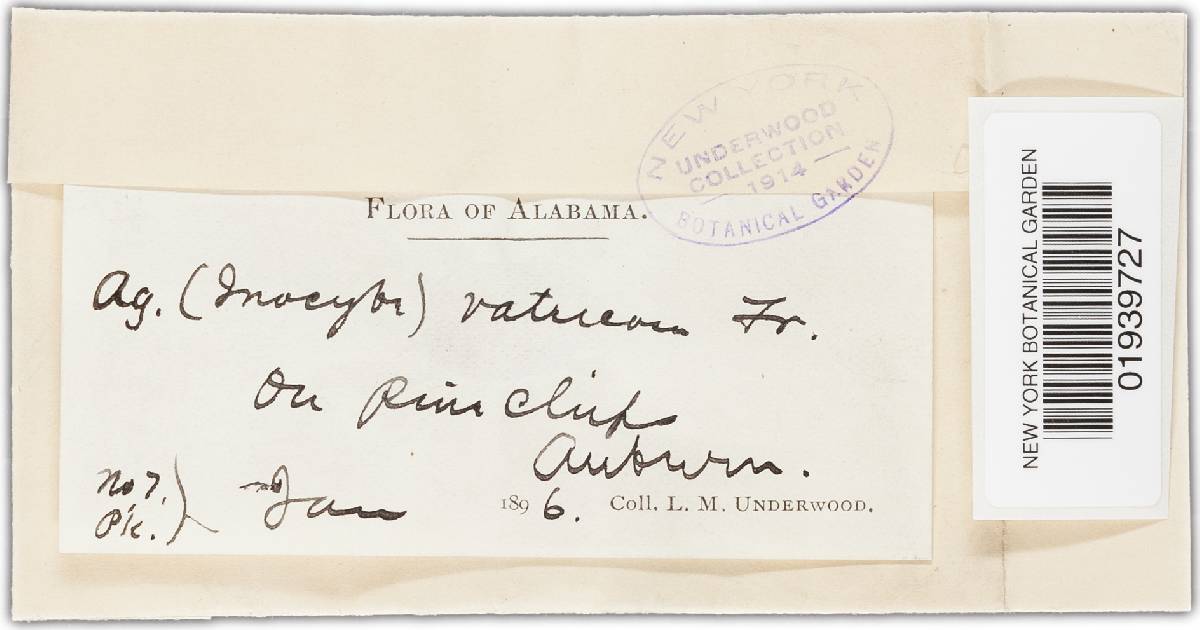 NEW YORK
UNDERWOOD
COLLECTION
— 1914 —
BOTANICAL GARDEN
FLORA OF ALABAMA.
Ag. (Inocybe) vatricosa Fr.
On pine chips
Auburn.
No 7.
Pk.)
Jan 1896. Coll. L. M. UNDERWOOD.
NEW YORK BOTANICAL GARDEN
01939727